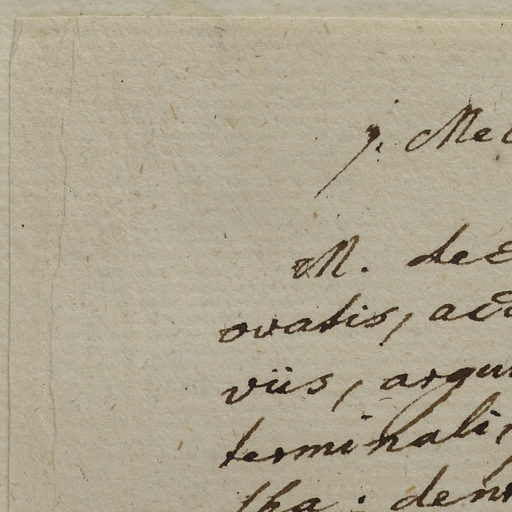 j. Mel
M. dec
ovatis, acu
viis, argu
terminali
tha: den